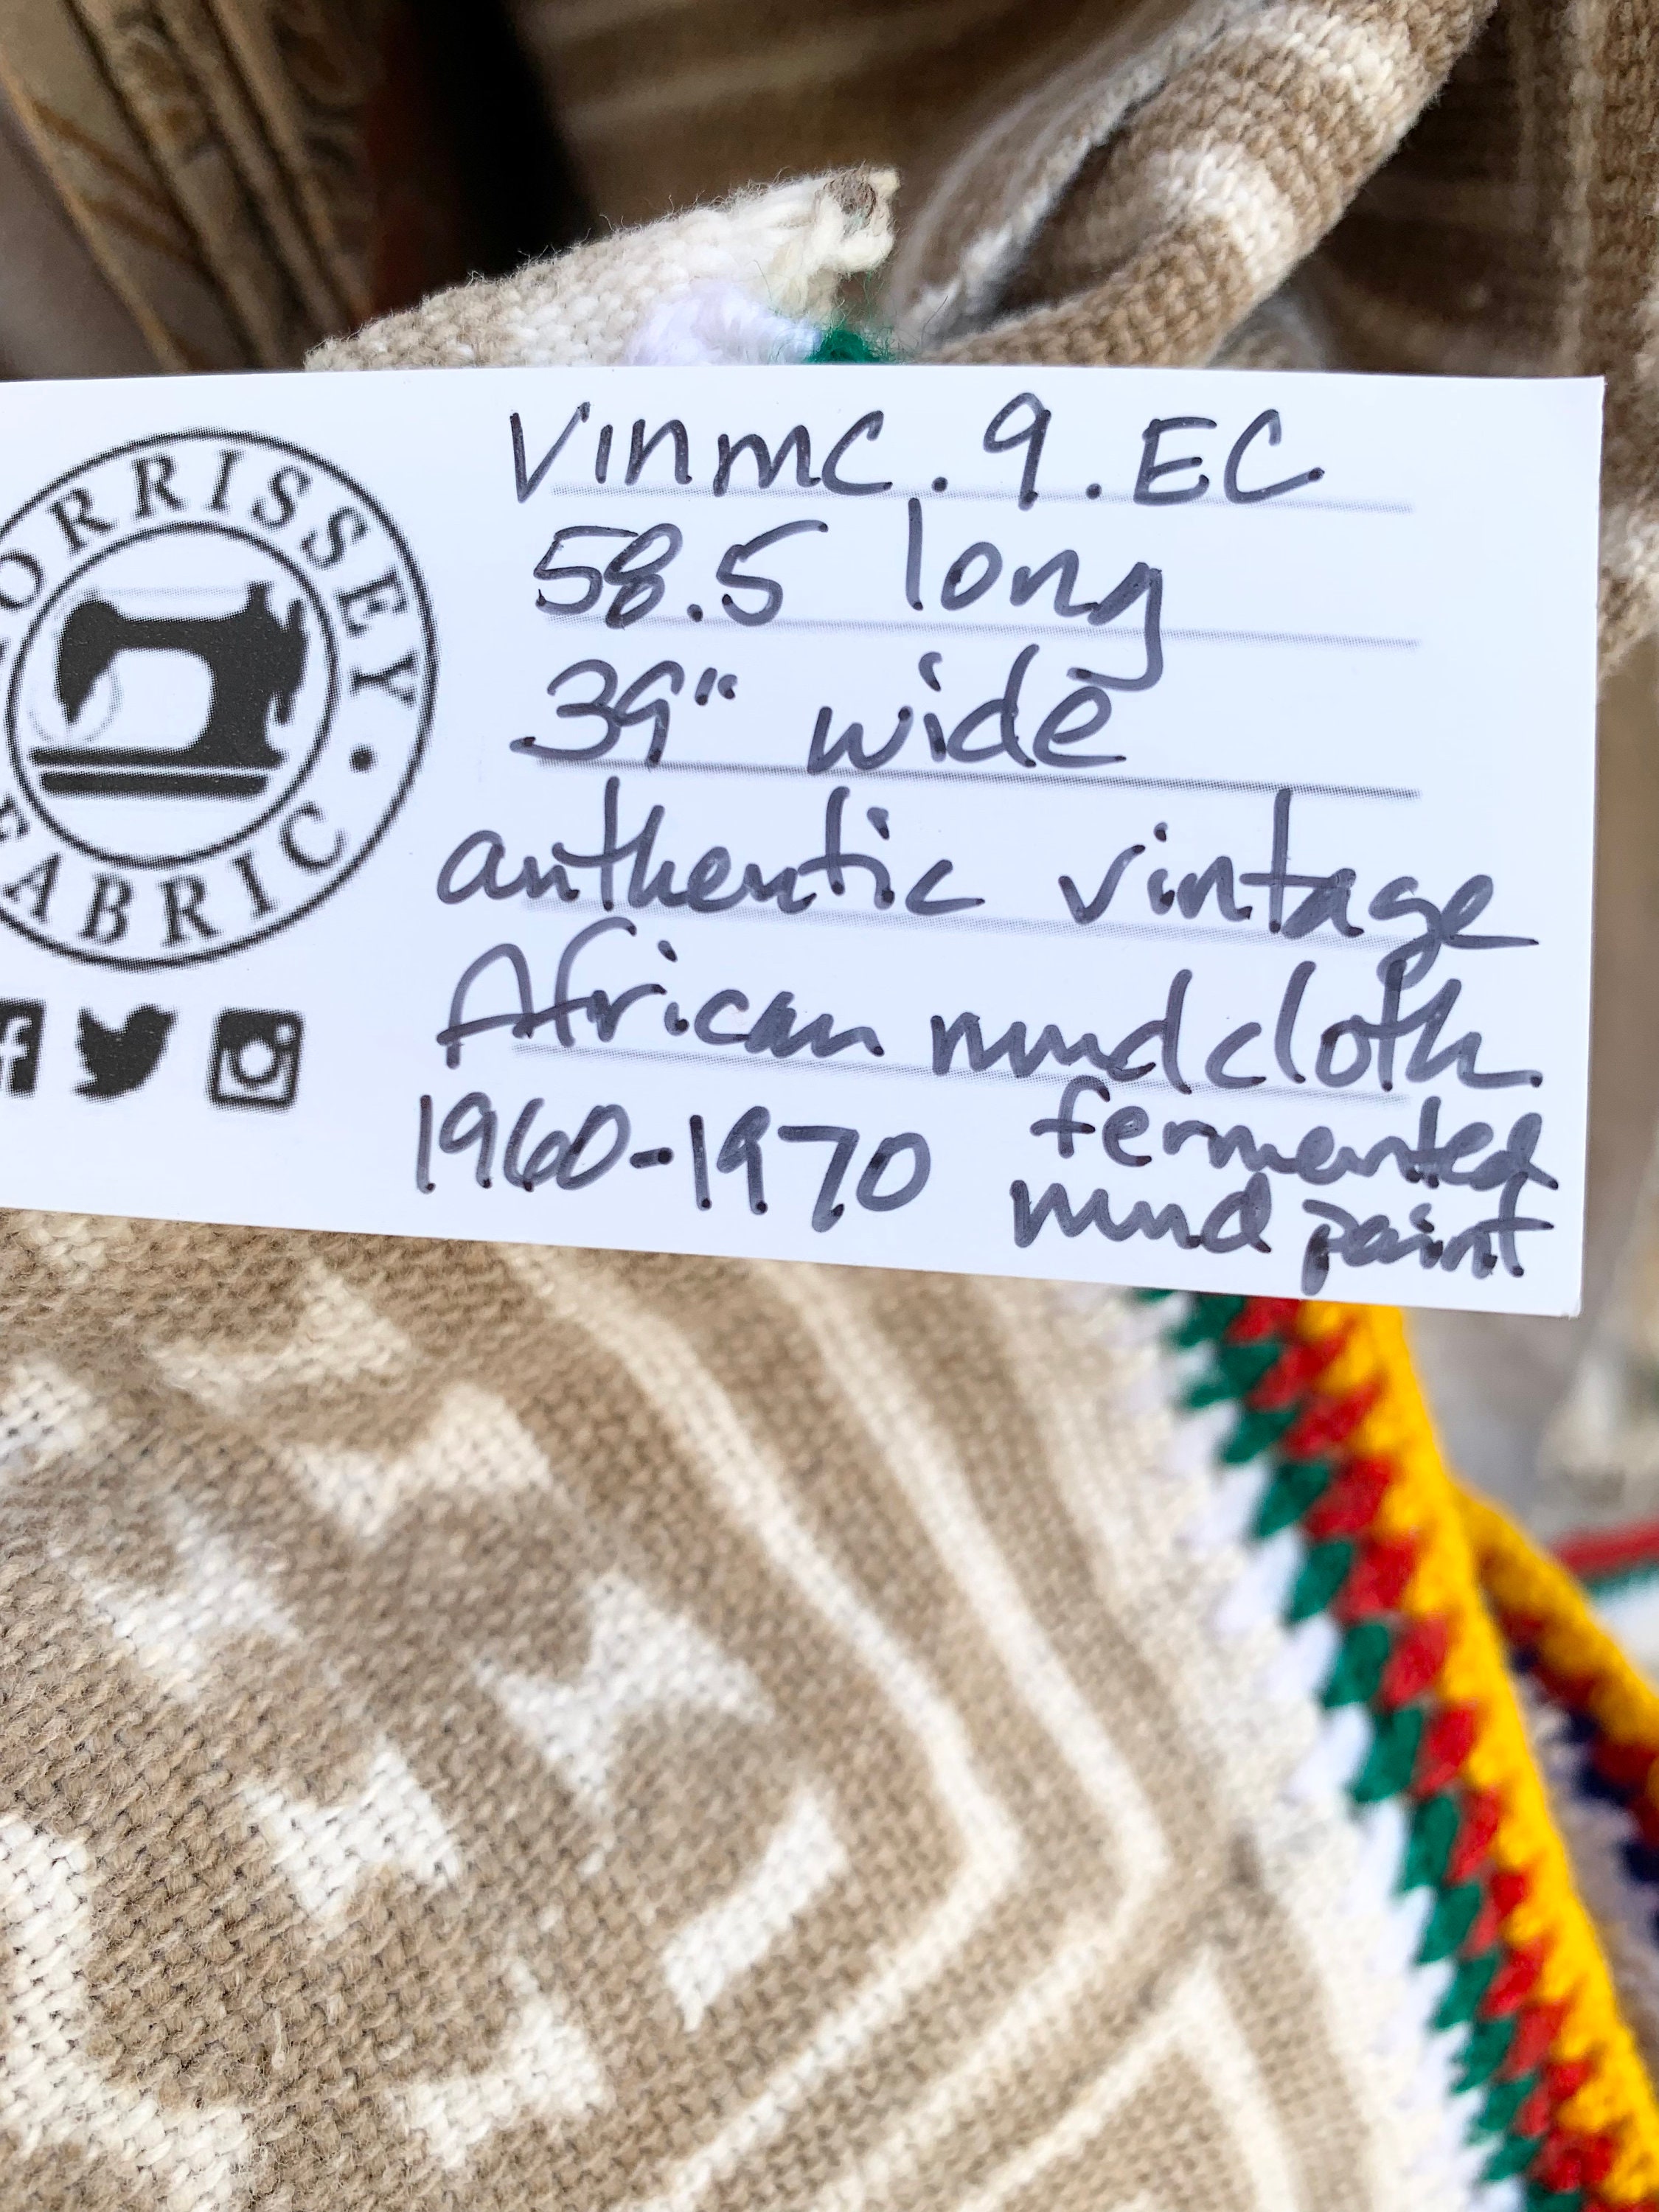 ORRISSEY
FABRIC
Vinmc.9.EC
58.5 long
39" wide
authentic vintage
African mudcloth
1960-1970 fermented
mud paint